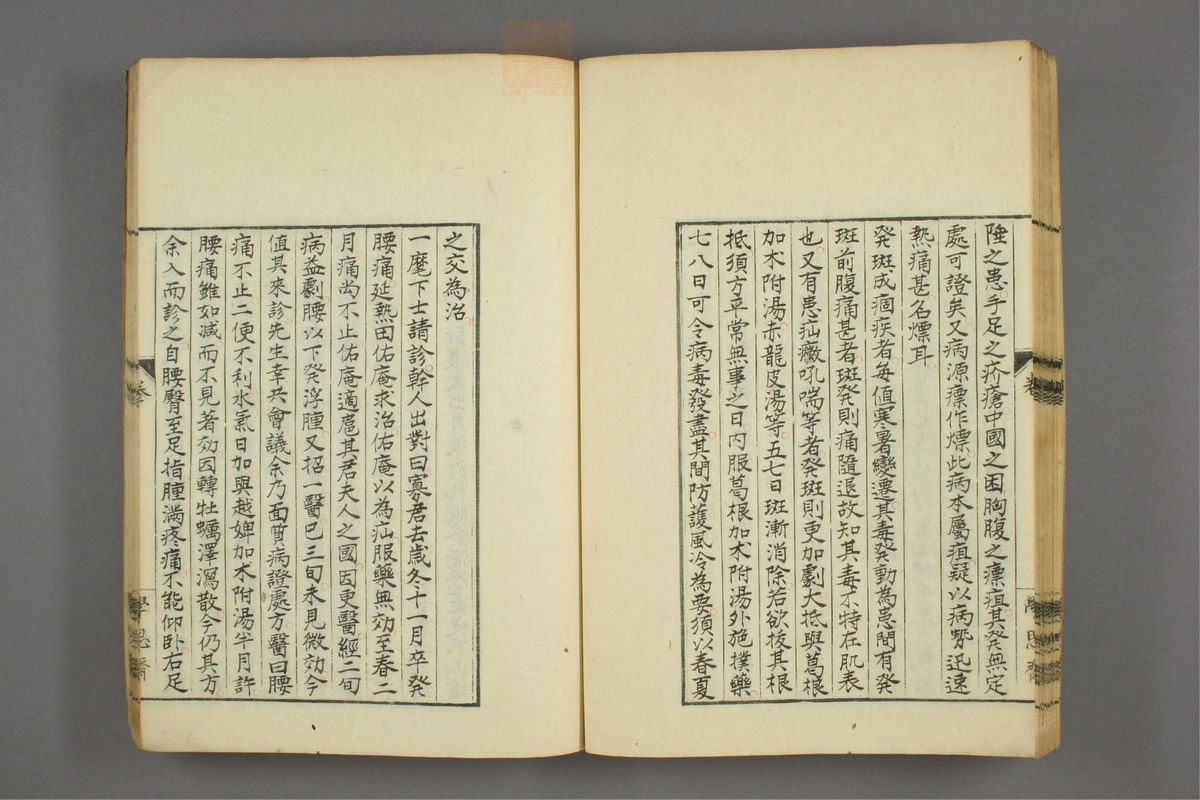 陲之患手足之疥瘡中國之困胸腹之瘭疽其発無定
處可證矣又病源瘭作熛此病本屬疽疑以病勢迅速
熱痛甚名熛耳
発斑成痼疾者每值寒暑變遷其毒発動為患間有発
斑前腹痛甚者斑発則痛隨退故知其毒不特在肌表
也又有患疝癥吼喘等者発斑則更加劇大抵與葛根
加朮附湯赤龍皮湯等五七日斑漸消除若欲拔其根
抵須方平常無事之日内服葛根加朮附湯外施撲藥
七八日可令病毒発盡其間防護風冷為要須以春夏
之交為治
一麾下士請診幹人出對曰寡君去歲冬十一月卒発
腰痛延熱田佑庵求治佑庵以為疝服藥無効至春二
月痛尚不止佑庵適扈其君夫人之國因更醫經二旬
病益劇腰以下発浮腫又招一醫已三旬未見微効今
值其來診先生幸共會議余乃面質病證處方醫曰腰
痛不止二便不利水氣日加與越婢加朮附湯半月許
腰痛雖如減而不見著効因轉牡蠣澤瀉散今仍其方
余入而診之自腰臀至足指腫滿疼痛不能仰卧右足
卷
學思齋